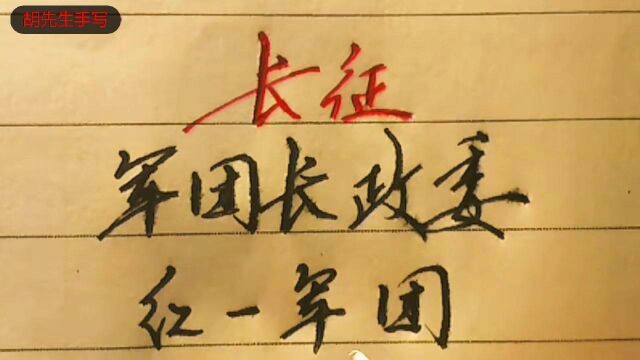 胡先生手写
长征
军团长政委
红一军团